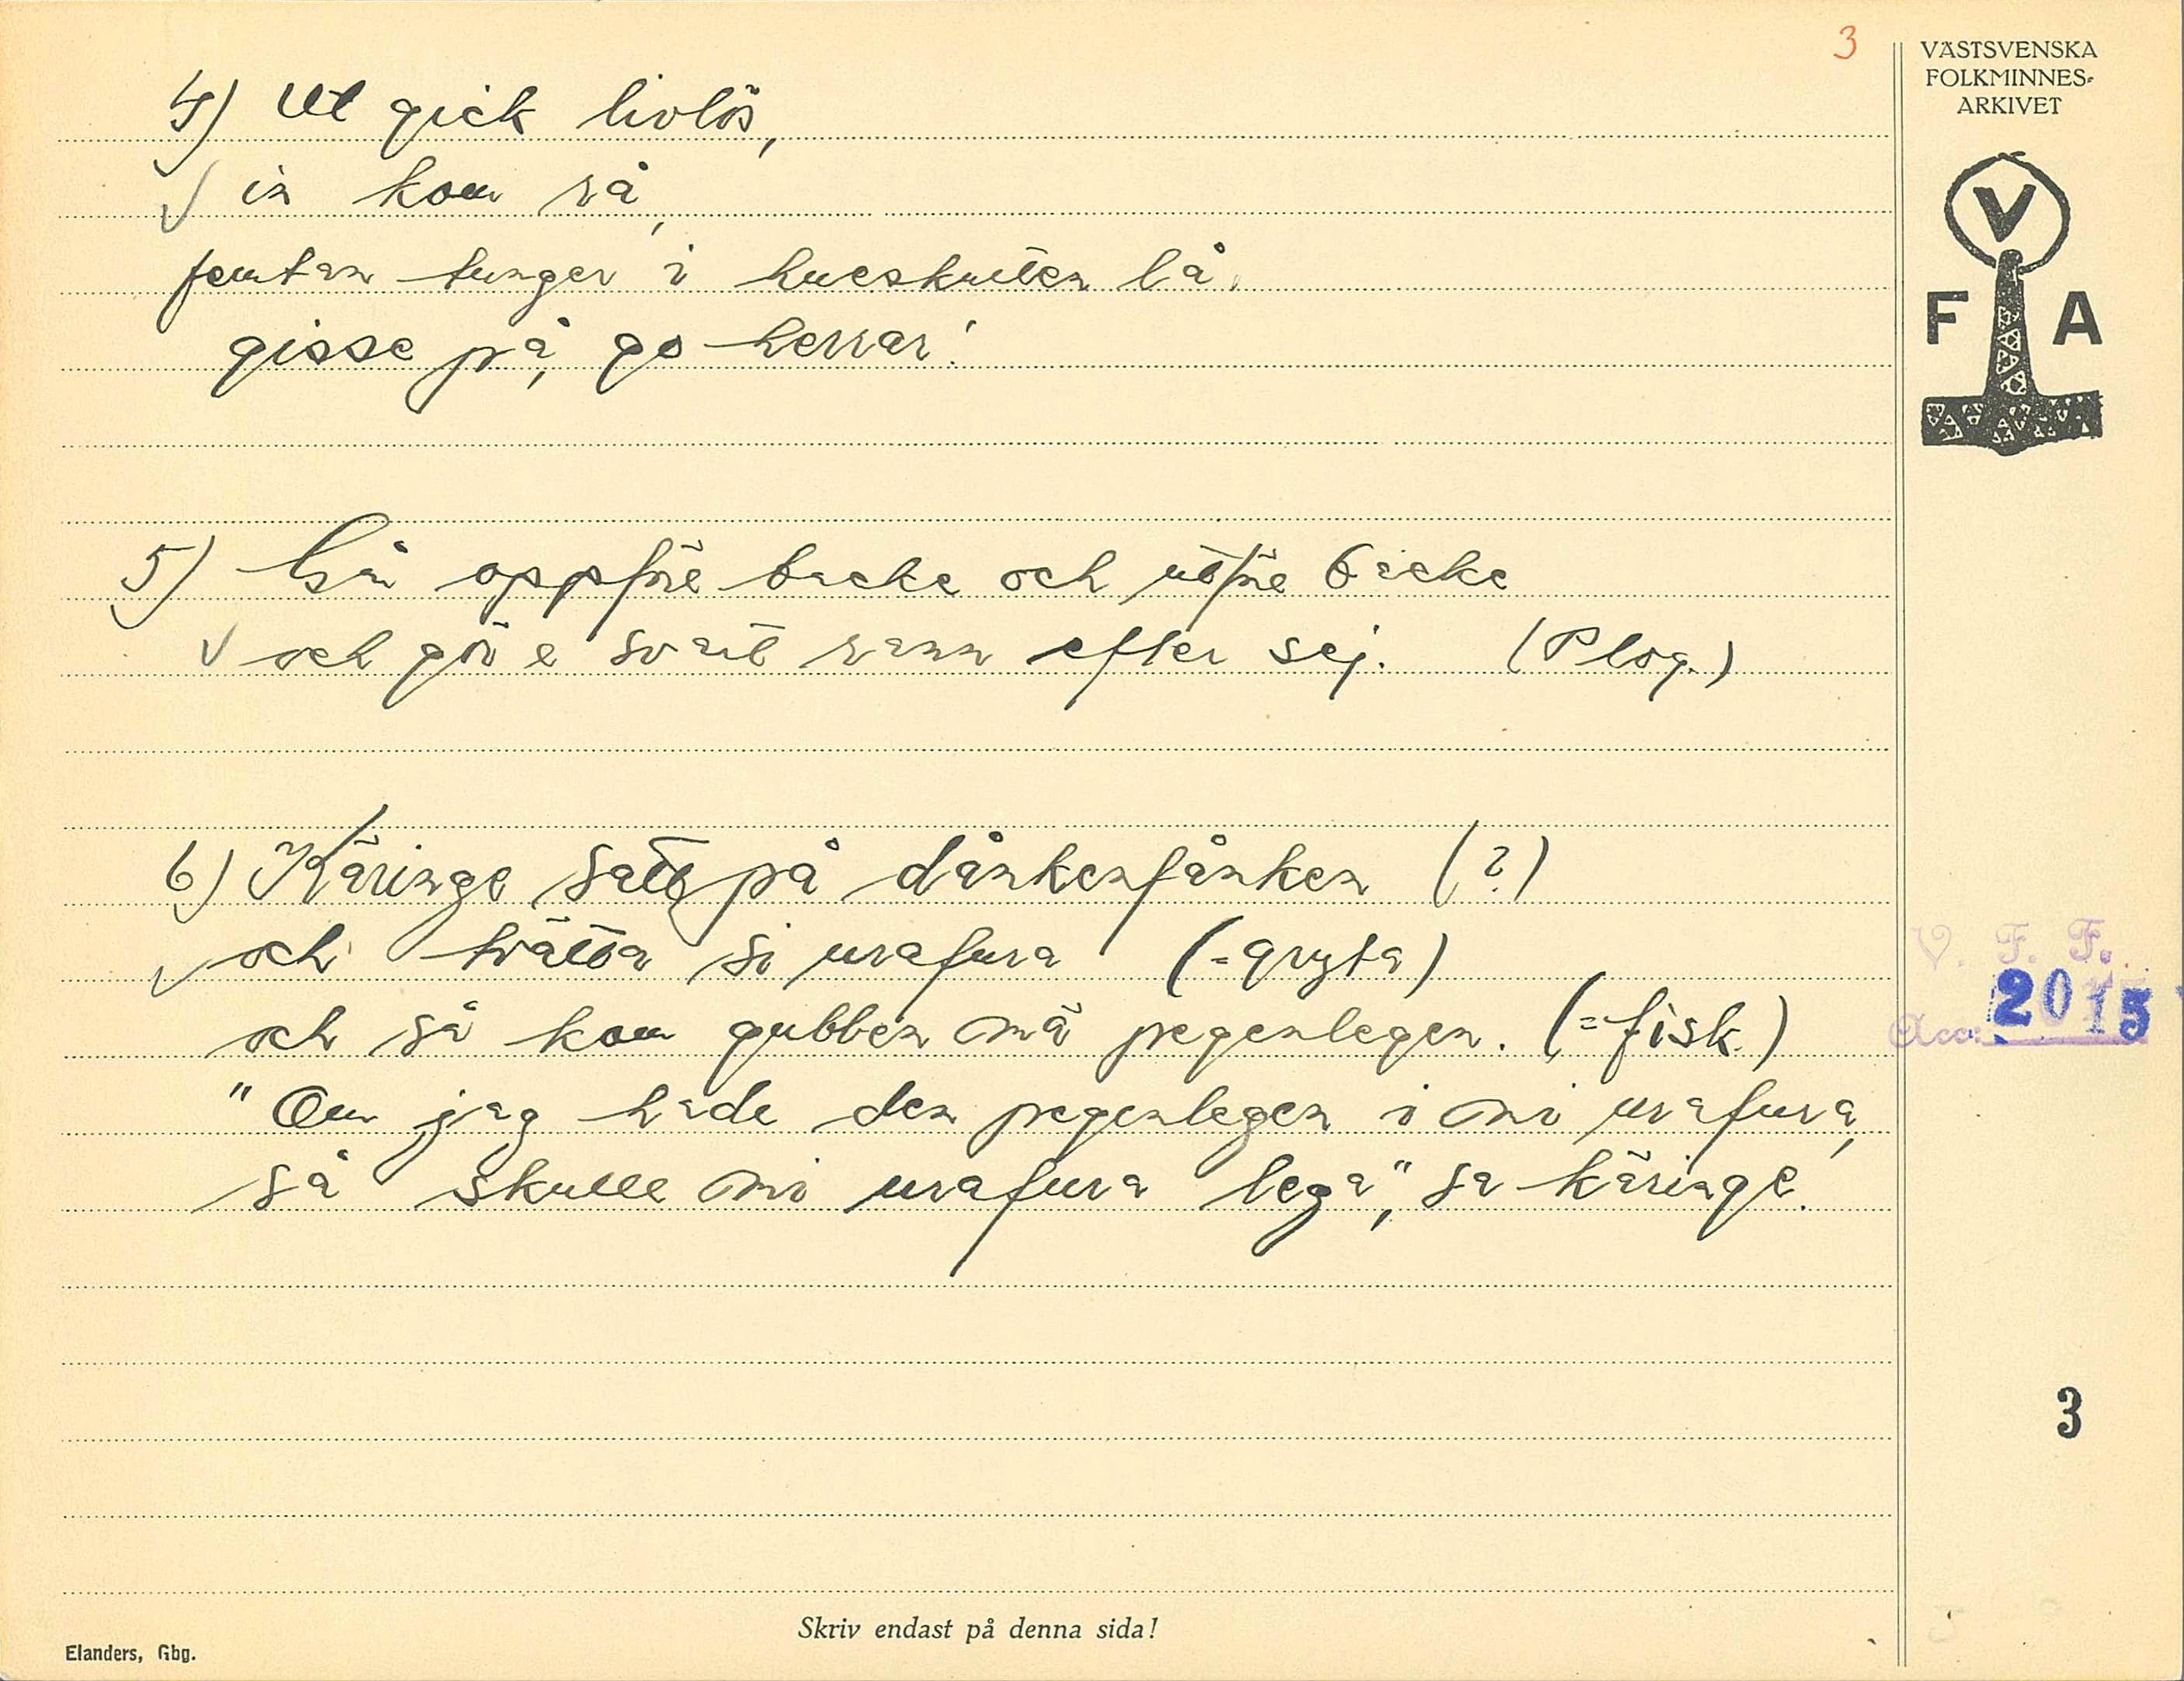 3
VÄSTSVENSKA
FOLKMINNES-
ARKIVET
V
F A
4) Ut gick livlös,
in kom rå,
femtan tunger i hueskulten lå.
gisse på, go herrar!
5) Går oppföre backe och utföre backe
och gör e svart rann efter sej. (Plog.)
6) Käringe satt på dånkenfånken (?)
och tvätta si urafura (=gryta)
och så kom gubben mä pegenlegen. (=fisk)
"Om jag hade den pegenlegen i mi urafura,
så skulle mi urafura lega", sa käringe.
V. F. F.
Acc: 2015
3
Skriv endast på denna sida!
Elanders, Gbg.